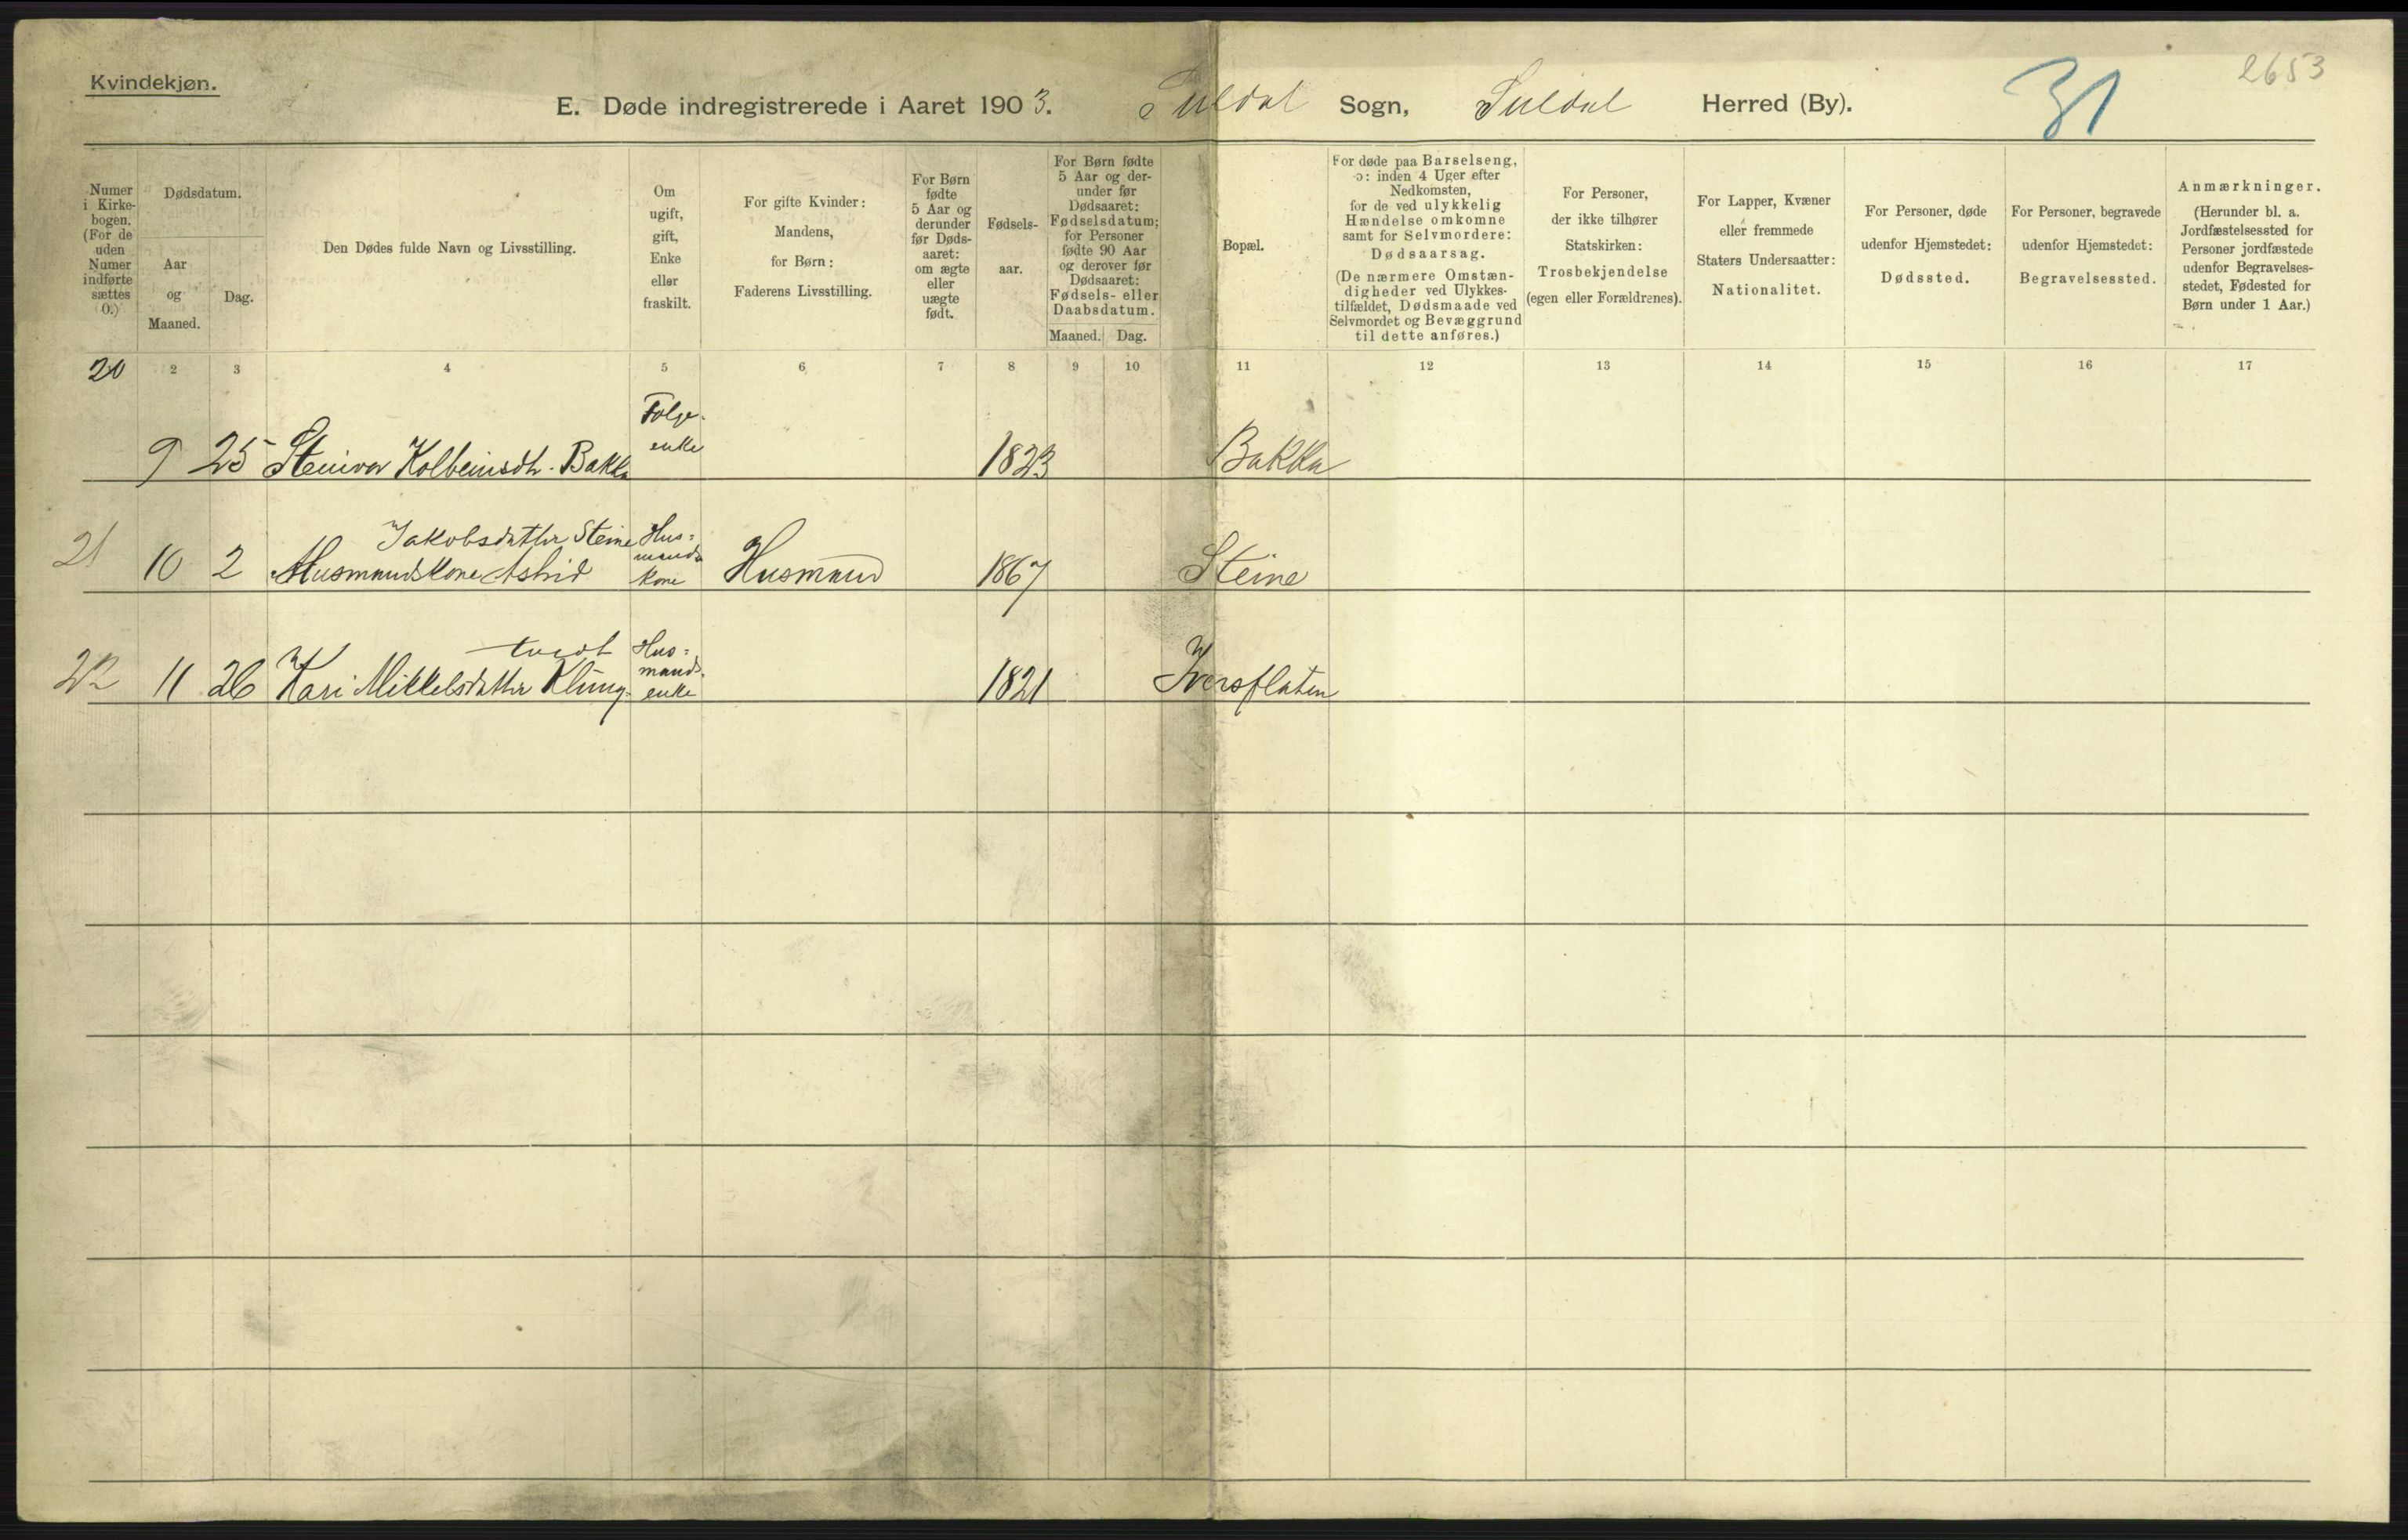 Kvindekjøn.
2653
31
E. Døde indregistrerede i Aaret 1903. Suldal Sogn, Suldal Herred (By).
Numer
i Kirke-
bogen.
(For de
uden
Numer
indførte
sættes
O.)
Dødsdatum.
Aar
og
Maaned.
Dag.
Den Dødes fulde Navn og Livsstilling.
Om
ugift,
gift,
Enke
eller
fraskilt.
For gifte Kvinder:
Mandens,
for Børn:
Faderens Livsstilling.
For Børn
fødte
5 Aar og
derunder
før Døds-
aaret:
om ægte
eller
uægte
født.
Fødsels-
aar.
For Børn fødte
5 Aar og der-
under før
Dødsaaret:
Fødselsdatum;
for Personer
fødte 90 Aar
og derover før
Dødsaaret:
Fødsels- eller
Daabsdatum.
Maaned. Dag.
Bopæl.
For døde paa Barselseng,
ɔ: inden 4 Uger efter
Nedkomsten,
for de ved ulykkelig
Hændelse omkomne
samt for Selvmordere:
Dødsaarsag.
(De nærmere Omstæn-
digheder ved Ulykkes-
tilfældet, Dødsmaade ved
Selvmordet og Bevæggrund
til dette anføres.)
For Personer,
der ikke tilhører
Statskirken:
Trosbekjendelse
(egen eller Forældrenes).
For Lapper, Kvæner
eller fremmede
Staters Undersaatter:
Nationalitet.
For Personer, døde
udenfor Hjemstedet:
Dødssted.
For Personer, begravede
udenfor Hjemstedet:
Begravelsessted.
Anmærkninger.
(Herunder bl. a.
Jordfæstelsessted for
Personer jordfæstede
udenfor Begravelses-
stedet, Fødested for
Børn under 1 Aar.)
20 2 3 4 5 6 7 8 9 10 11 12 13 14 15 16 17
Folge-
enke
9 25 Steinvor Kolbeinsdtr. Bakka 1823 Bakka
Jakobsdatter Steine Hus=
mands
21 10 2 Husmandskone Astrid kone Husmand 1867 Steine
tvedt Hus=
mands-
22 11 26 Kari Mikkelsdatter Kling- enke 1821 Iversflaten